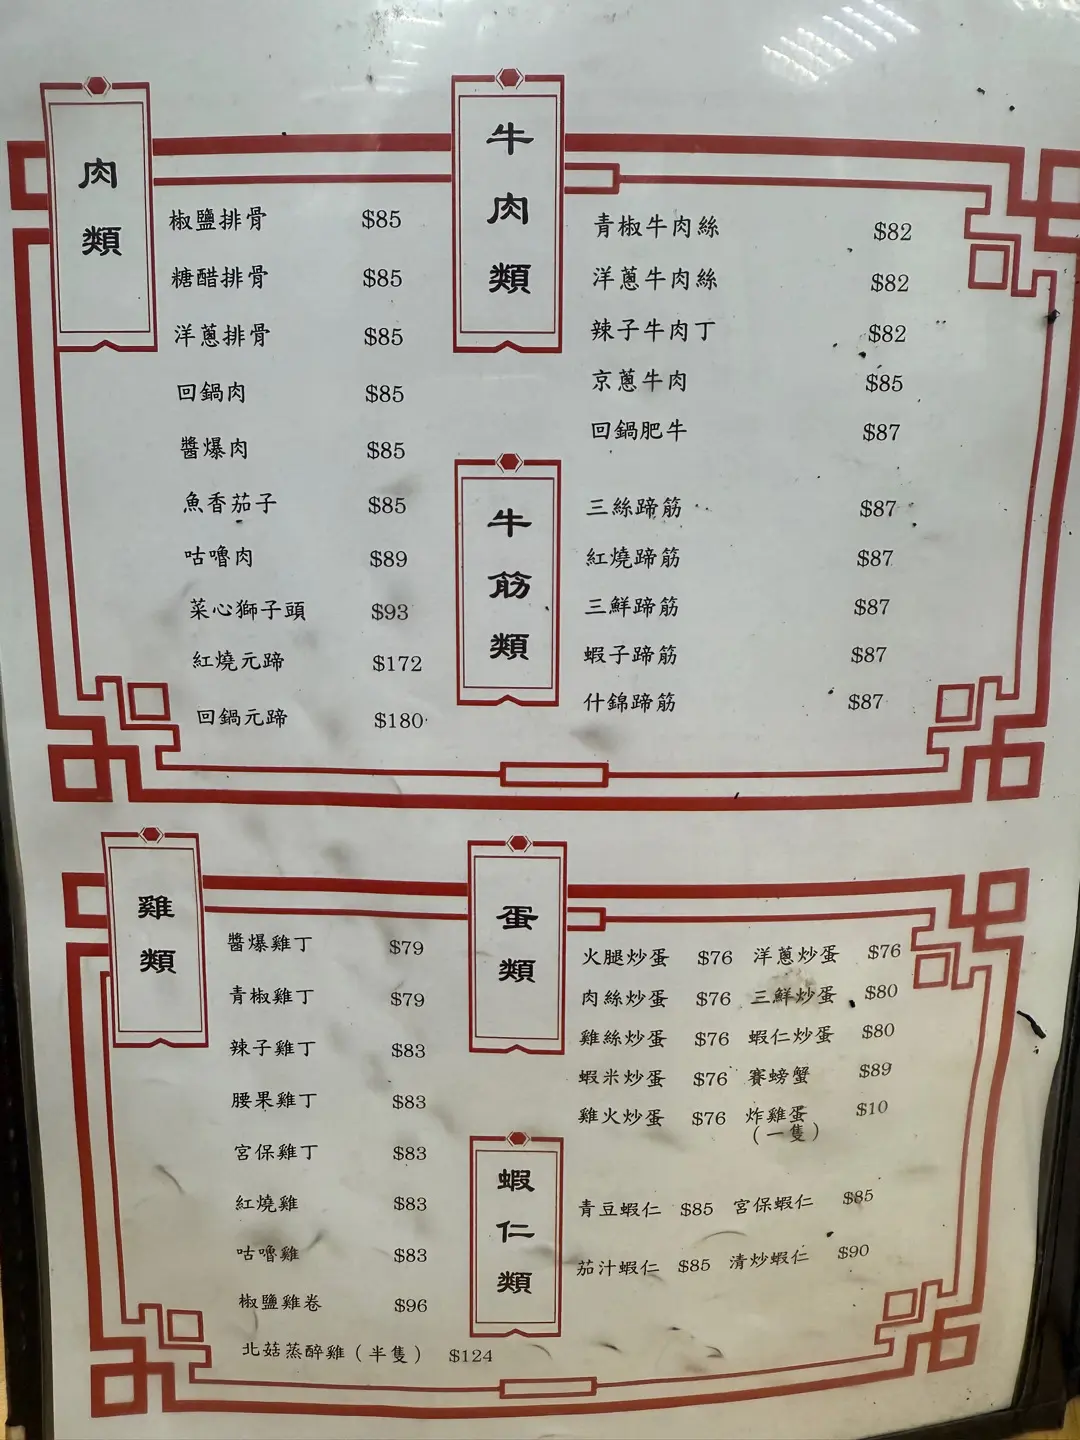 肉類
椒鹽排骨 $85
糖醋排骨 $85
洋蔥排骨 $85
回鍋肉 $85
醬爆肉 $85
魚香茄子 $85
咕嚕肉 $89
菜心獅子頭 $93
紅燒元蹄 $172
回鍋元蹄 $180
牛肉類
青椒牛肉絲 $82
洋蔥牛肉絲 $82
辣子牛肉丁 $82
京蔥牛肉 $85
回鍋肥牛 $87
牛筋類
三絲蹄筋 $87
紅燒蹄筋 $87
三鮮蹄筋 $87
蝦子蹄筋 $87
什錦蹄筋 $87
雞類
醬爆雞丁 $79
青椒雞丁 $79
辣子雞丁 $83
腰果雞丁 $83
宮保雞丁 $83
紅燒雞 $83
咕嚕雞 $83
椒鹽雞卷 $96
北菇蒸醉雞（半隻） $124
蛋類
火腿炒蛋 $76 洋蔥炒蛋 $76
肉絲炒蛋 $76 三鮮炒蛋 $80
雞絲炒蛋 $76 蝦仁炒蛋 $80
蝦米炒蛋 $76 賽螃蟹 $89
雞火炒蛋 $76 炸雞蛋 $10
（一隻）
蝦仁類
青豆蝦仁 $85 宮保蝦仁 $85
茄汁蝦仁 $85 清炒蝦仁 $90